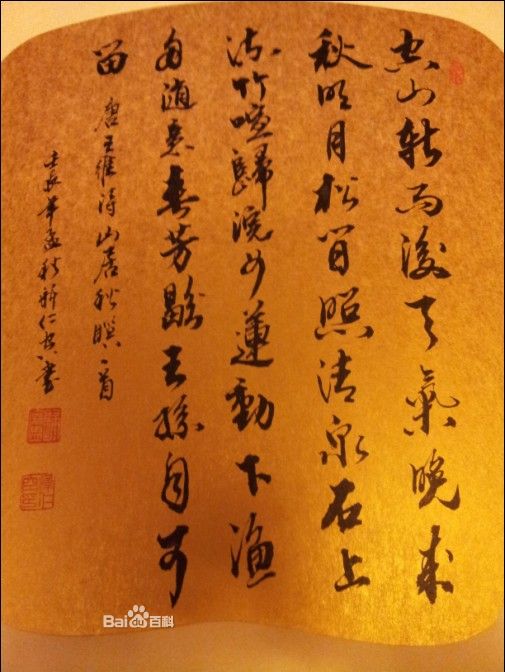 空山新雨後天氣晚来
秋明月松間照清泉石上
流竹喧歸浣女蓮動下漁
舟隨意春芳歇王孫自可
留 唐王維詩山居秋暝一首
壬辰年孟秋 仁 書
Baidu百科